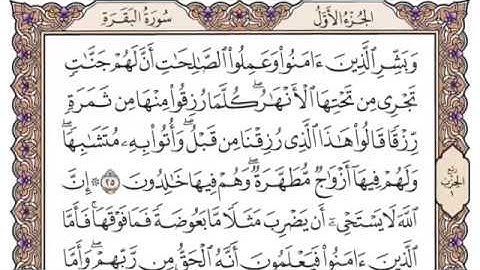 الجُزْءُ الأَوَّلُ
سُورَةُ البَقَرَةِ
وَبَشِّرِ ٱلَّذِينَ ءَامَنُوا۟ وَعَمِلُوا۟ ٱلصَّـٰلِحَـٰتِ أَنَّ لَهُمْ جَنَّـٰتٍ
تَجْرِى مِن تَحْتِهَا ٱلْأَنْهَـٰرُ ۖ كُلَّمَا رُزِقُوا۟ مِنْهَا مِن ثَمَرَةٍ
رِّزْقًا قَالُوا۟ هَـٰذَا ٱلَّذِى رُزِقْنَا مِن قَبْلُ ۖ وَأُتُوا۟ بِهِۦ مُتَشَـٰبِهًا ۖ
وَلَهُمْ فِيهَآ أَزْوَٰجٌ مُّطَهَّرَةٌ ۖ وَهُمْ فِيهَا خَـٰلِدُونَ ٢٥ ۞ إِنَّ
ٱللَّهَ لَا يَسْتَحْىِۦٓ أَن يَضْرِبَ مَثَلًا مَّا بَعُوضَةً فَمَا فَوْقَهَا ۚ فَأَمَّا
ٱلَّذِينَ ءَامَنُوا۟ فَيَعْلَمُونَ أَنَّهُ ٱلْحَقُّ مِن رَّبِّهِمْ ۖ وَأَمَّا
رُبع
الحِزْب
١